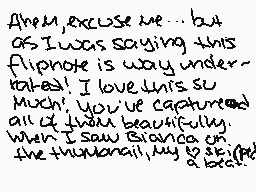 Ahem, excuse me... but
as I was saying this
flipnote is way under-
rated! I love this so
much! you've captured
all of them beautifully.
When I saw Bianca on
the thumbnail, my ♡ skipped
a beat.